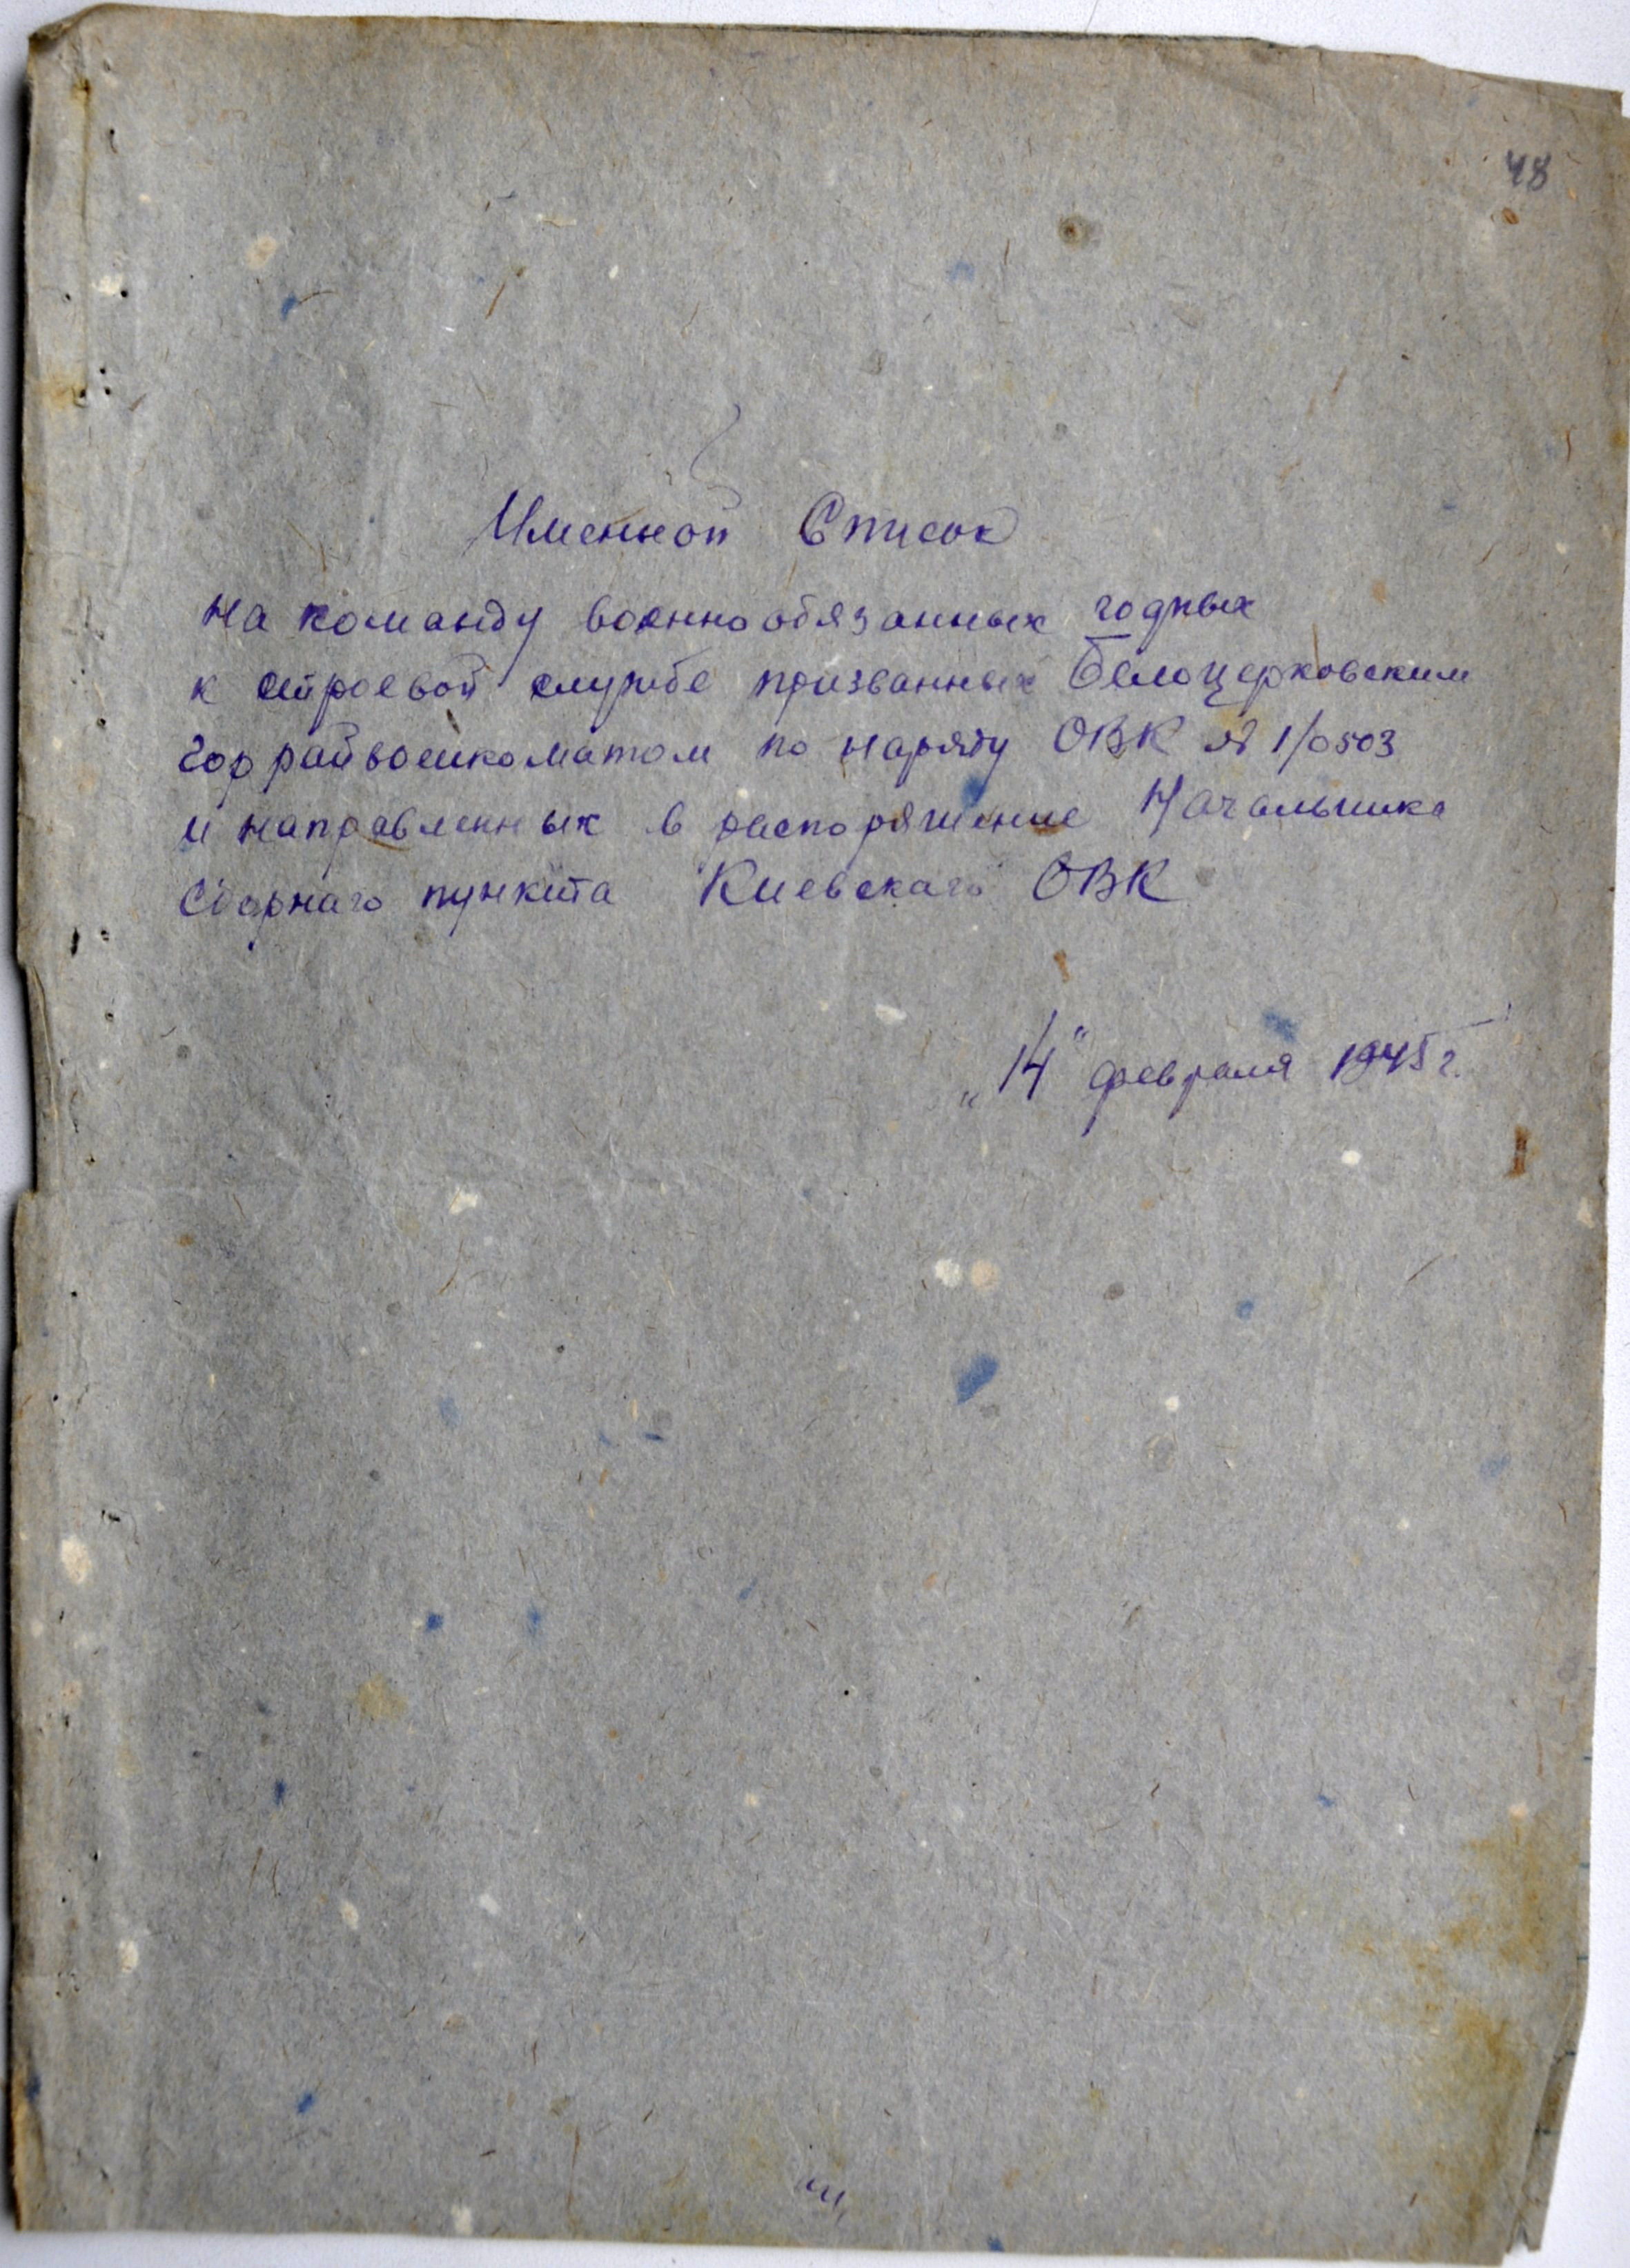 48
Именной Список
на команду военнообязанных годных
к строевой службе призванных Белоцерковским
Горрайвоенкоматом по наряду ОВК № 1/0503
и направленных в распоряжение Начальника
Сборнаго пункта Киевскаго ОВК
„14" февраля 1945 г.